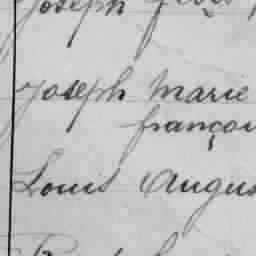 Joseph
Joseph Marie
françoi
Louis Augus